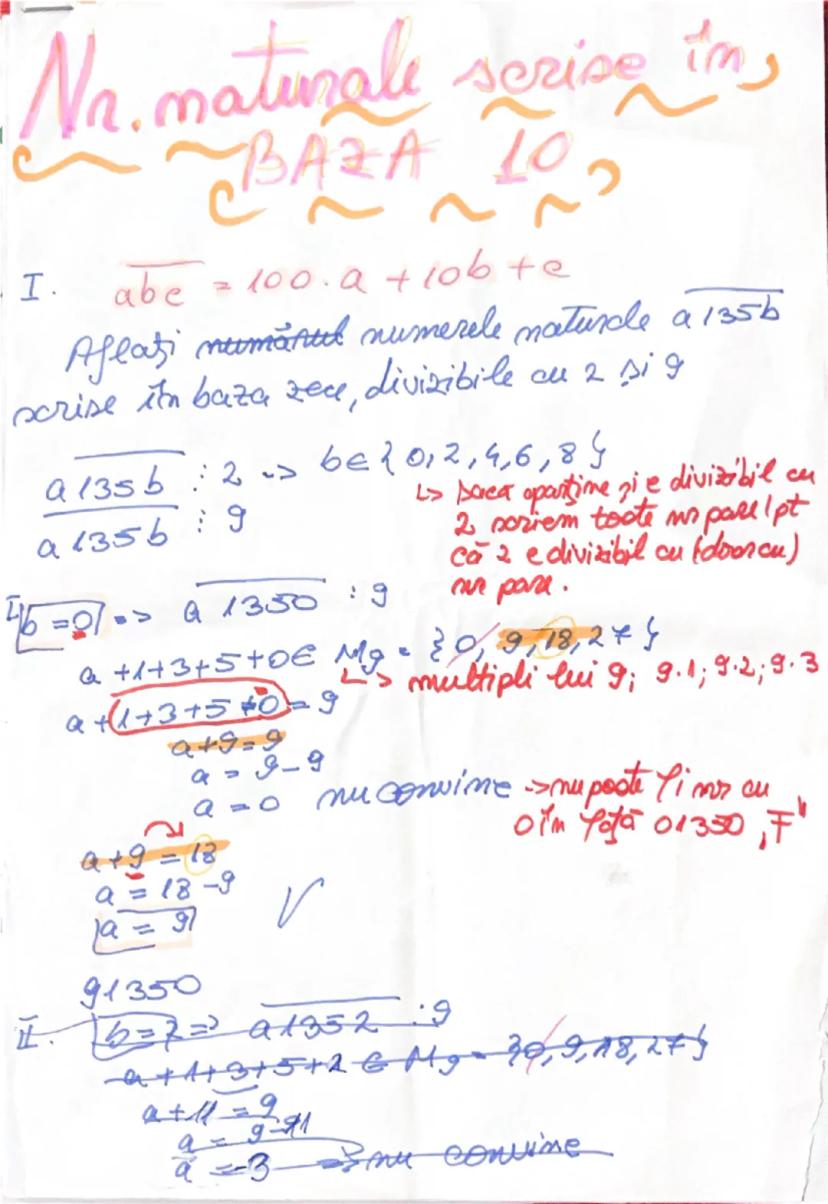 Nr. naturale scrise în
BAZA 10
I. abc = 100·a + 10b + c
Aflați numărul numerele naturale a135b
scrise în baza zece, divizibile cu 2 și 9
a135b ⋮ 2 => b∈{0,2,4,6,8}
a135b ⋮ 9
↳ Dacă aparține și e divizibil cu
2 scriem toate nr pare/pt
că 2 e divizibil cu (doar cu)
nr pare.
I b=0 => a1350 ⋮ 9
a+1+3+5+0∈ M9 = {0, 9,18,27}
↳ multipli lui 9; 9·1; 9·2; 9·3
a+1+3+5+0 = 9
a+9=9
a = 9-9
a = 0 nu convine -> nu poate fi nr cu
0 în față 01350 „F"
a+9 = 18
a = 18-9
a = 9 V
91350
II. b=2 => a1352 ⋮ 9
a+1+3+5+2 ∈ M9 = {0,9,18,27}
a+11 = 9
a = 9-11
a = -3 => nu convine